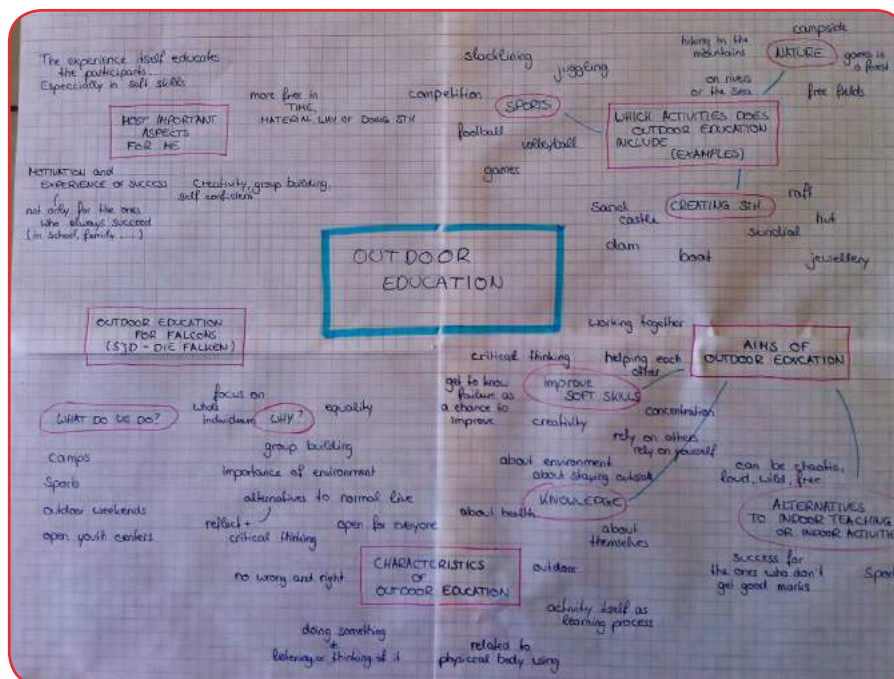 The experience itself educates
the participants...
Especcially in soft skills
MOST IMPORTANT
ASPECTS
FOR ME
more free in
TIME,
MATERIAL, WAY OF DOING STH
MOTIVATION and
EXPERIENCE OF SUCCESS
not only for the ones
who always succeed
(in school, family ....)
Creativity, group building,
self confidence
slacklining
juggling
competition
SPORTS
football
volleyball
games
WHICH ACTIVITIES DOES
OUTDOOR EDUCATION
INCLUDE
(EXAMPLES)
hiking in the
mountains
campside
NATURE
games in
a forest
on rives
or the sea
free fields
CREATING STH.
Sand
castle
raft
hut
sundial
dam
boat
jewellery
OUTDOOR
EDUCATION
OUTDOOR EDUCATION
FOR FALCONS
(SJD - DIE FALKEN)
WHAT DO WE DO?
camps
Sports
outdoor weekends
open youth centers
WHY?
focus on
whole
individuum
equality
group building
importance of environment
alternatives to normal live
reflect +
critical thinking
open for everyone
AIMS OF
OUTDOOR EDUCATION
working together
critical thinking
helping each
other
improve
SOFT SKILLS
get to know
failure as
a chance to
improve
creativity
concentration
rely on others
rely on yourself
KNOWLEDGE
about environment
about staying outside
about health
about
themselves
can be chaotic,
loud, wild, free
ALTERNATIVES
TO INDOOR TEACHING
OR INDOOR ACTIVITIE
success for
the ones who don't
get good marks
Sport
CHARACTERISTICS
OF
OUTDOOR EDUCATION
no wrong and right
outdoor
activity itself as
learning process
doing something
listening or thinking of it
related to
physical body using